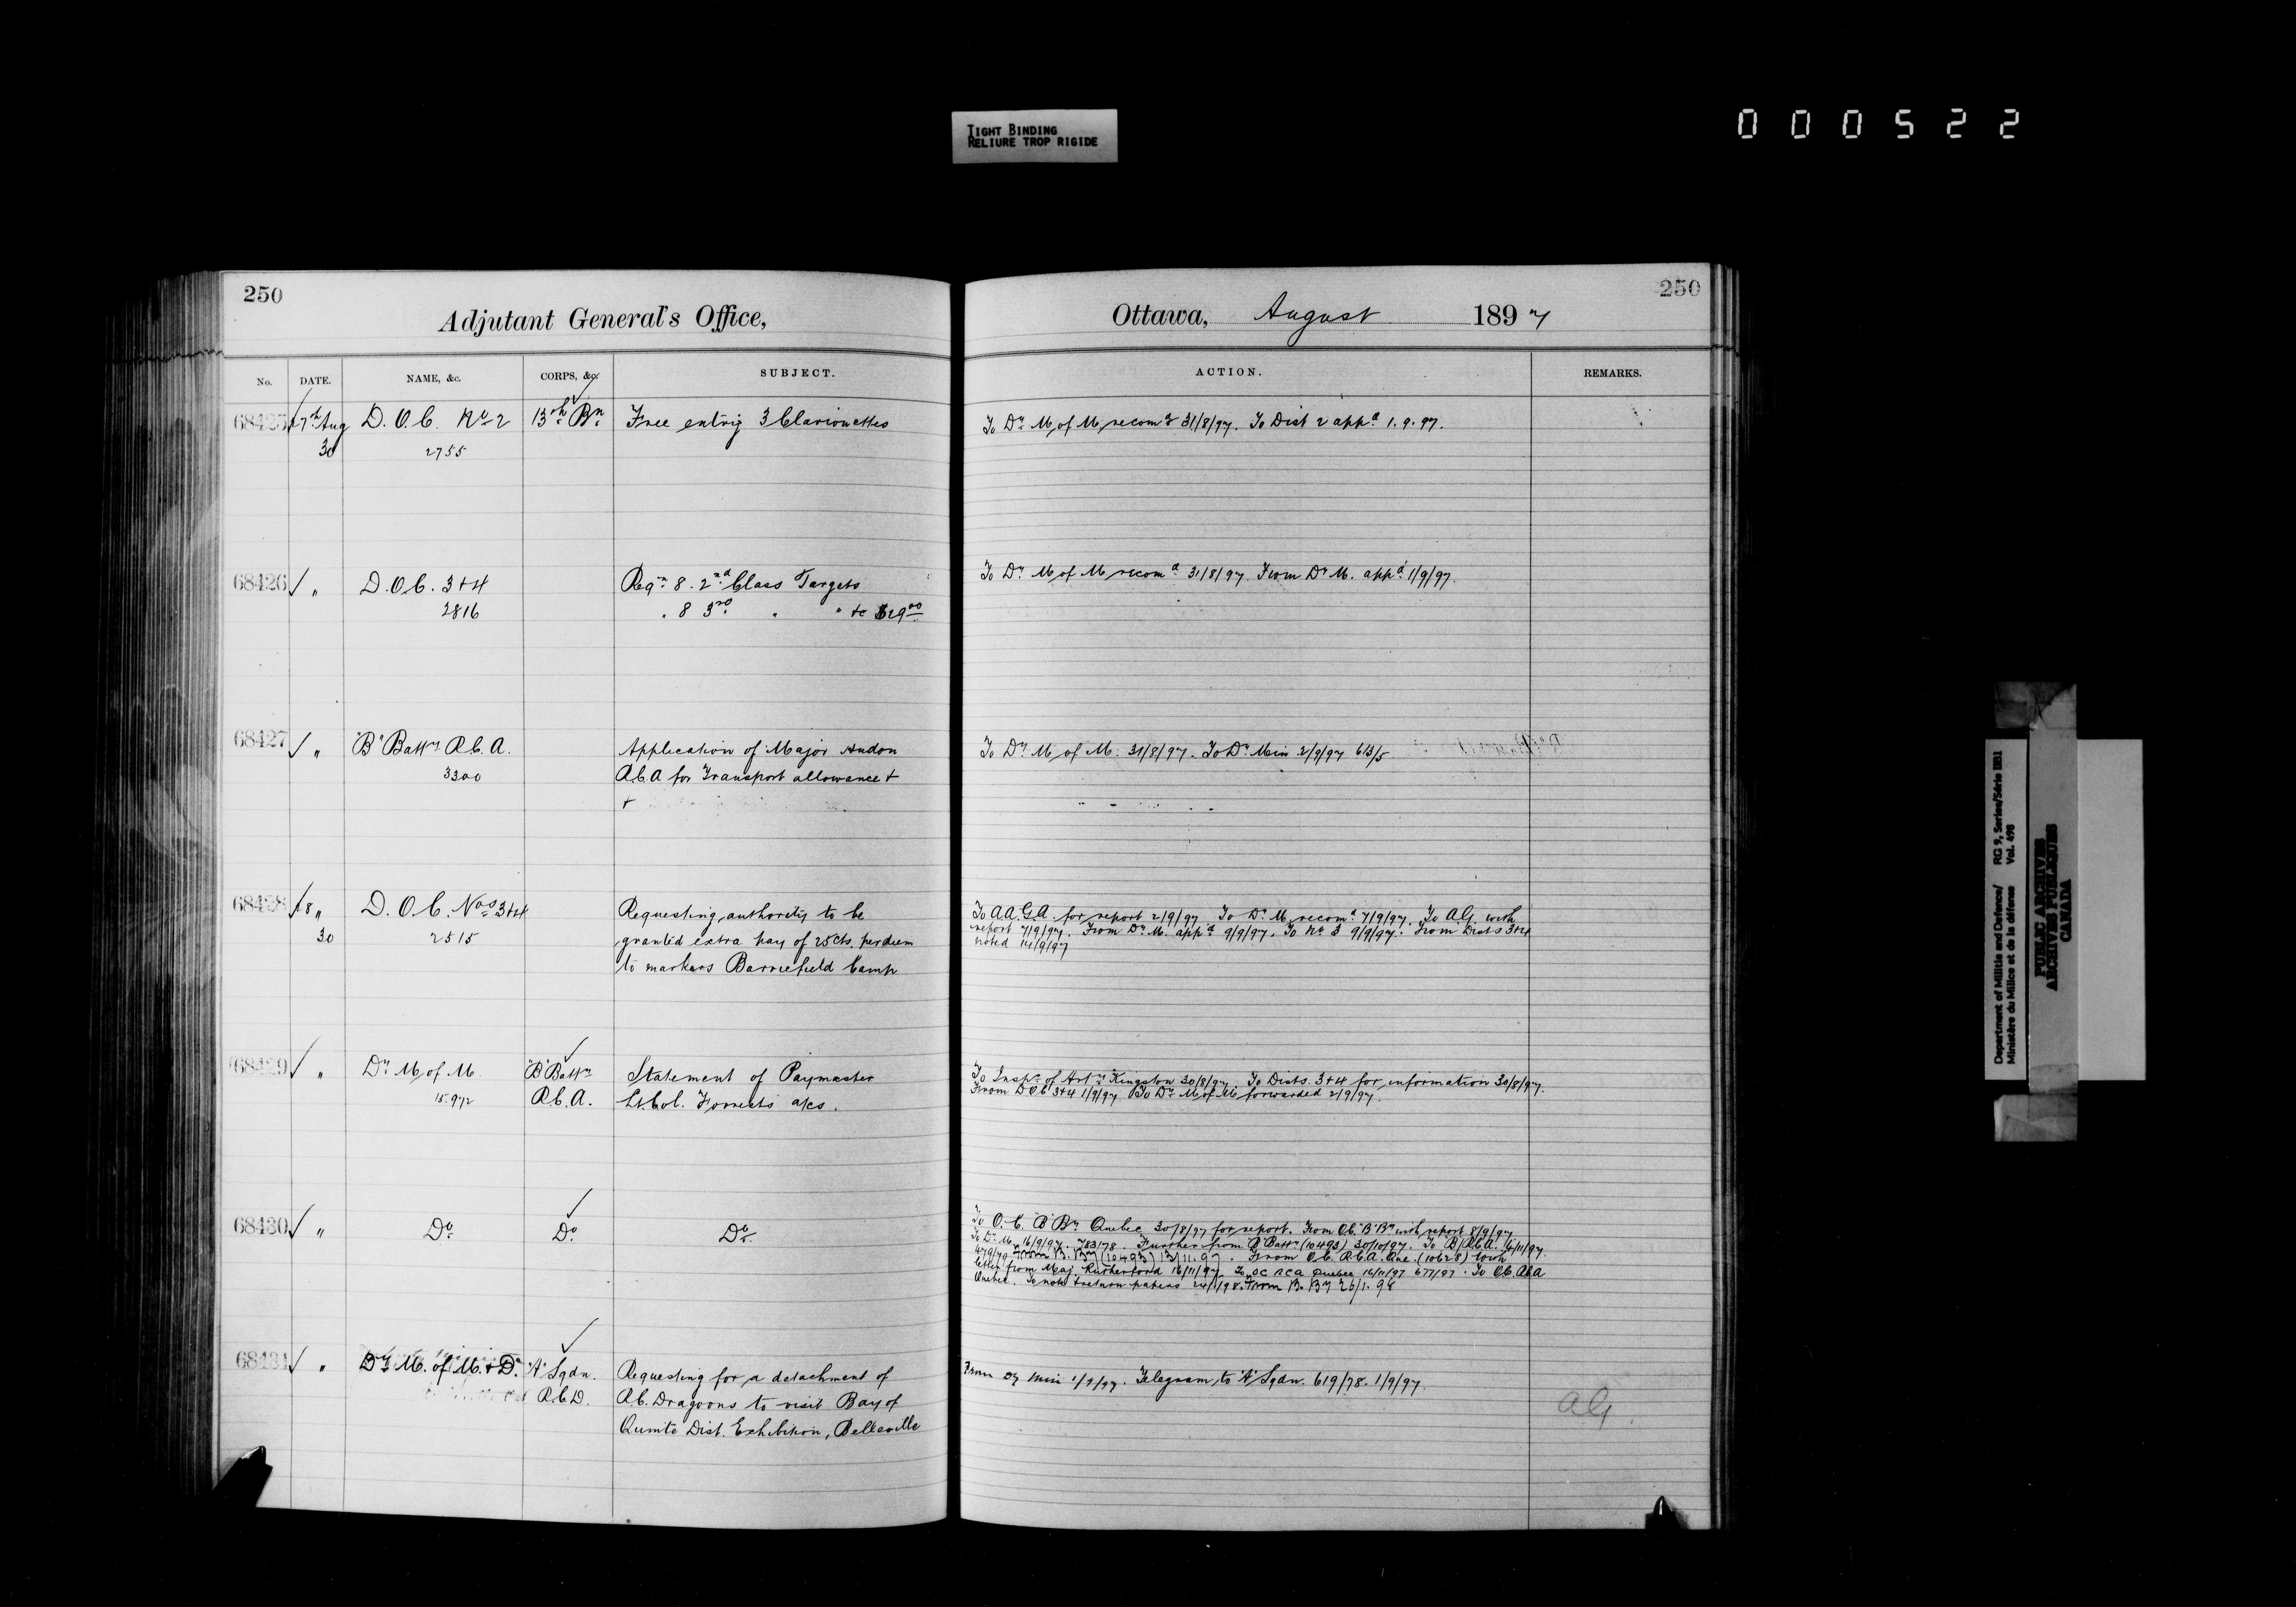 TIGHT BINDING
RELIURE TROP RIGIDE
000522
250
Adjutant General's Office,
No. DATE. NAME, &c. CORPS, &c. SUBJECT.
68425 27th Aug D. O. C. No 2 13th Bn. Free entry 3 Clarionettes
30 2755
68426 " D. O. C. 3+4 Reqn 8. 2nd Class Targets
2816 " 8 3rd " "
68427 " "B" Batty R.C.A. Application of Major Hudon
3300 R.C.A for Transport allowance +
+
68428 28 " D. O. C. Nos 3+4 Requesting authority to be
30 2515 granted extra pay of 25cts. per diem
to markers Barriefield Camp
68429 " Dy M of M "B" Batty Statement of Paymaster
15972 R.C.A. Lt. Col. Forrest's a/cs.
68430 " Do Do Do
68431 " Dy M. of M. + D. "A" Sqdn. Requesting for a detachment of
R.C.D. R.C. Dragoons to visit Bay of
Quinte Dist. Exhibition, Belleville
250
Ottawa, August 1897
ACTION. REMARKS.
To Dy M of M recomd 31/8/97. To Dist 2 appd 1.9.97.
To Dy M of M recomd 31/8/97. From Dy M. appd 1/9/97.
To Dy M of M. 31/8/97. To Dy Min 2/9/97 613/5
To A.A.G.A. for report 2/9/97 To Dy M. recomd 7/9/97. To A.G. with
report 7/9/97. From Dy M. appd 9/9/97. To No 3 9/9/97. From Dists 3+4
noted 14/9/97
To Insp. of Arty Kingston 30/8/97. To Dists. 3+4 for information 30/8/97.
From D O C 3+4 1/9/97 To Dy M of M forwarded 2/9/97.
To O. C. "B" By Quebec 30/8/97 for report. From O.C. "B" By with report 8/9/97
To Dy M. 16/9/97. 783178. Further from "B" Batty (10493) 30/10/97. To B/R.C.A. 6/11/97.
From B. By (10493) 13/11.97. From O.C. R.C.A. Que. (10628) with
letter from Maj. Rutherford 16/11/97. To OC RCA Quebec 16/11/97 677/97. To O.C. R.C.A
Quebec. To note + return papers 24/1/98. From B. By 26/1.98
From Dy Min 1/9/97. Telegram to "A" Sqdn. 619/78. 1/9/97.
AG.
Department of Militia and Defence/ RG 9, Series/Série IIB1
Ministère du Milice et de la défense Vol. 498
PUBLIC ARCHIVES
ARCHIVES PUBLIQUES
CANADA